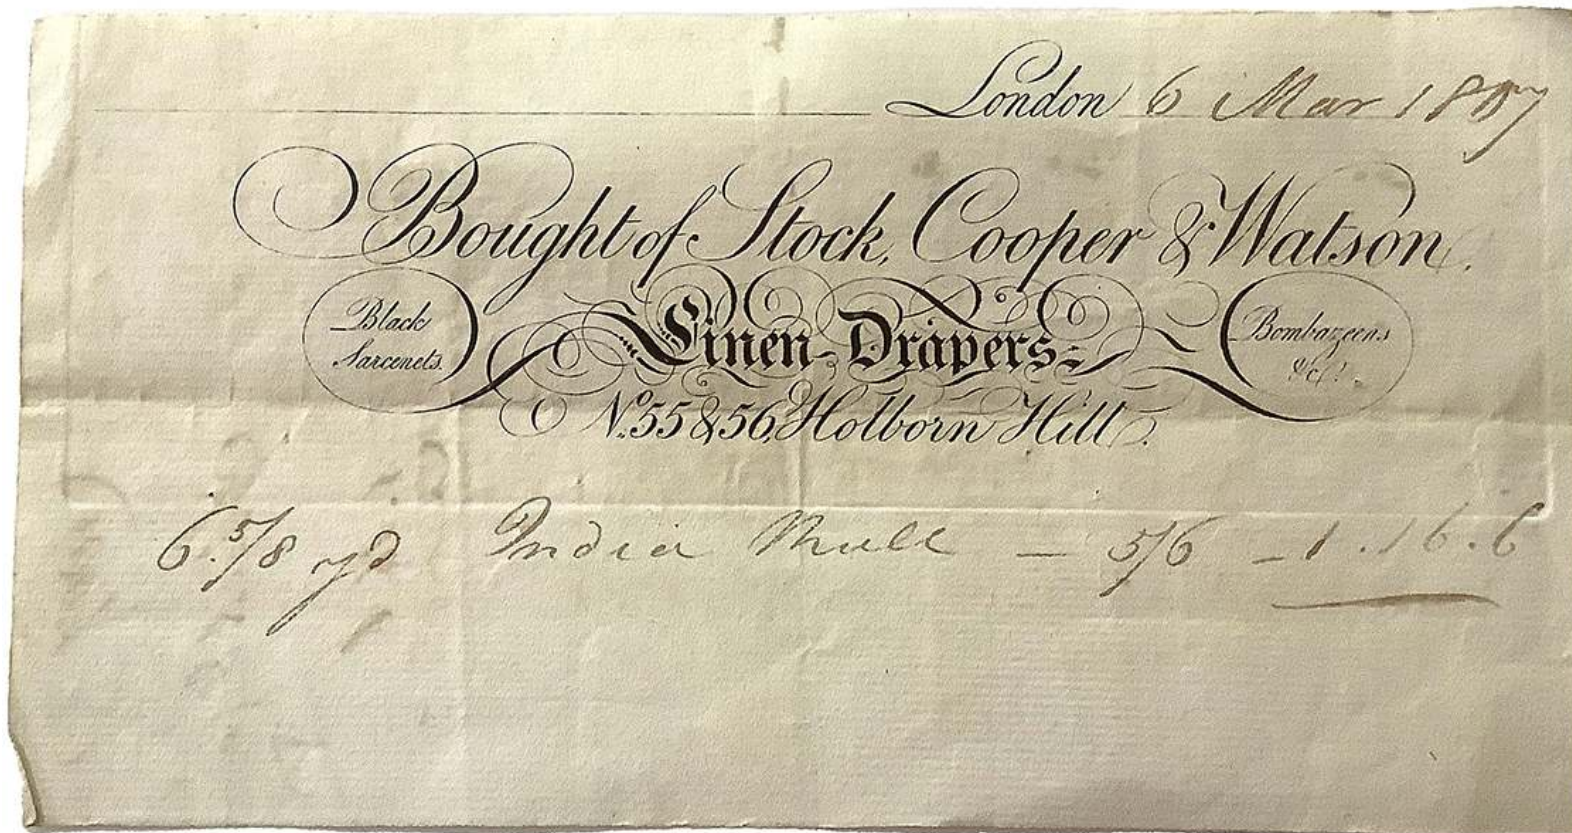 London 6 Mar 1807
Bought of Stock, Cooper & Watson.
Black
Sarcenets.
Linen-Drapers
Bombazeens
&c.
No. 55 & 56, Holborn Hill.
6 5/8 yd India Mull — 5/6 — 1.16.6